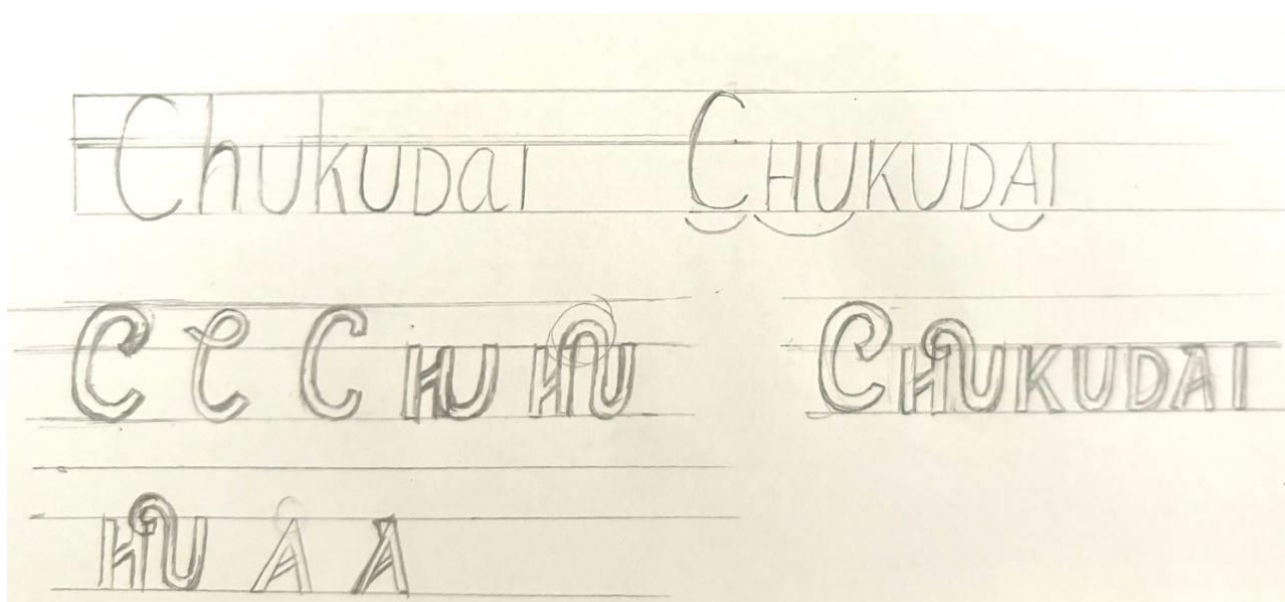 Chukudai CHUKUDAI
C C C HU HU CHUKUDAI
HU A A